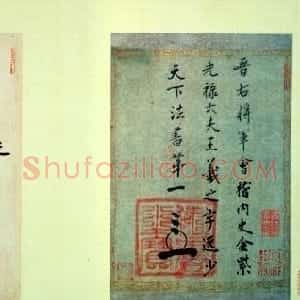 晋右将軍會稽内史金紫
光禄大夫王羲之字逸少
天下法書第一
Shufaziliao.com